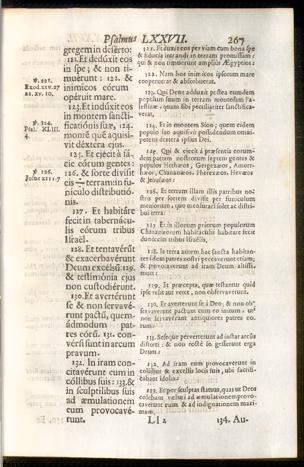 Psalmus LXXVII. 267
gregem in desérto:
121. Et dedúxit eos
in spe; & non ti-
muérunt: 122. &
inimicos córum
opéruit mare.
123. Et indúxit eos
in montem sancti-
ficatiónis suæ, 124.
monté quē aquisí-
vit déxtera ejus.
125. Et ejécit á fá-
cie córum gentes:
126. & sorte divísit
eis terram in fu-
nículo distributió-
nis.
127. Et habitáre
fecit in tabernácu-
lis córum tribus
Israël.
128. Et tentavérūt
& exacerbavérunt
Deum excélsū: 129.
& testimónia ejus
non custodiérunt.
130. Et avertérunt
se & non servavé-
runt pactū, quem-
ádmodum pat-
res córū. 131. con-
vérsi sunt in arcum
pravum.
132. In iram con-
citavérunt eum in
cóllibus suis: 133. &
in sculptílibus suis
ad æmulatiónem
eum provocavé-
runt.
℣ 121.
Exod. xiv. 27
℣ 124.
Psal. XLIII.
4.
℣ 126.
Josue XIII. 7
121. Et deduxit eos per viam cum bona spe
& fiducia intrandi in terram promissam:
qui & non timuerunt amplius Ægyptios:
122. Nam hos inimicos ipsorum mare
cooperuit & absorbuit.
123. Qui Deus adduxit postea eumdem
populum suum in terram montosam Pa-
læstinæ: quam sibi peculiariter sanctifica-
verat,
124. Et in montem Sion; quem eidem
populo suo aquisivit possidendum omni-
potens dextera ipsius Dei.
125. Qui & ejecit á præsentia eorum-
dem patrum nostrorum septem gentes &
populos Hethæos, Gergezæos, Amorr-
hæos, Chananæos, Pherezæos, Hevæos
& Jebusæos:
126. Et terram illam illis patribus no-
stris per sortem divisit per funiculum
mensorum, quo mensurari solet ac distri-
bui terra:
127. Et in illorum priorum populorum
Chananæorum habitaculis habitare fecit
duodecim tribus Israëlis,
128. In terra autem hac sancta habitan-
tes iidem patres nostri peccaverunt etiam;
& provocaverunt ad iram Deum altissi-
mum:
129. Et præcepta, quæ testantur quid
ipse velit aut vetet, non observaverunt.
130. Et averterunt se á Deo; & non ob-
servaverunt pactum cum eo initum, ut
non servaverant antiquiores patres eo-
rum:
131. Seseque perverterunt ad instar arcûs
distorti; & non recté se gesserunt erga
Deum:
132. Ad iram eum provocaverunt in
collibus & excelsis locis suis, ubi sacrifi-
cabant idolis:
133. Et per sculptas statuas, quas ut Deos
colebant velut ad æmulationem provo-
caverunt eum & ad indignationem maxi-
mam.
Ll 2 134. Au-